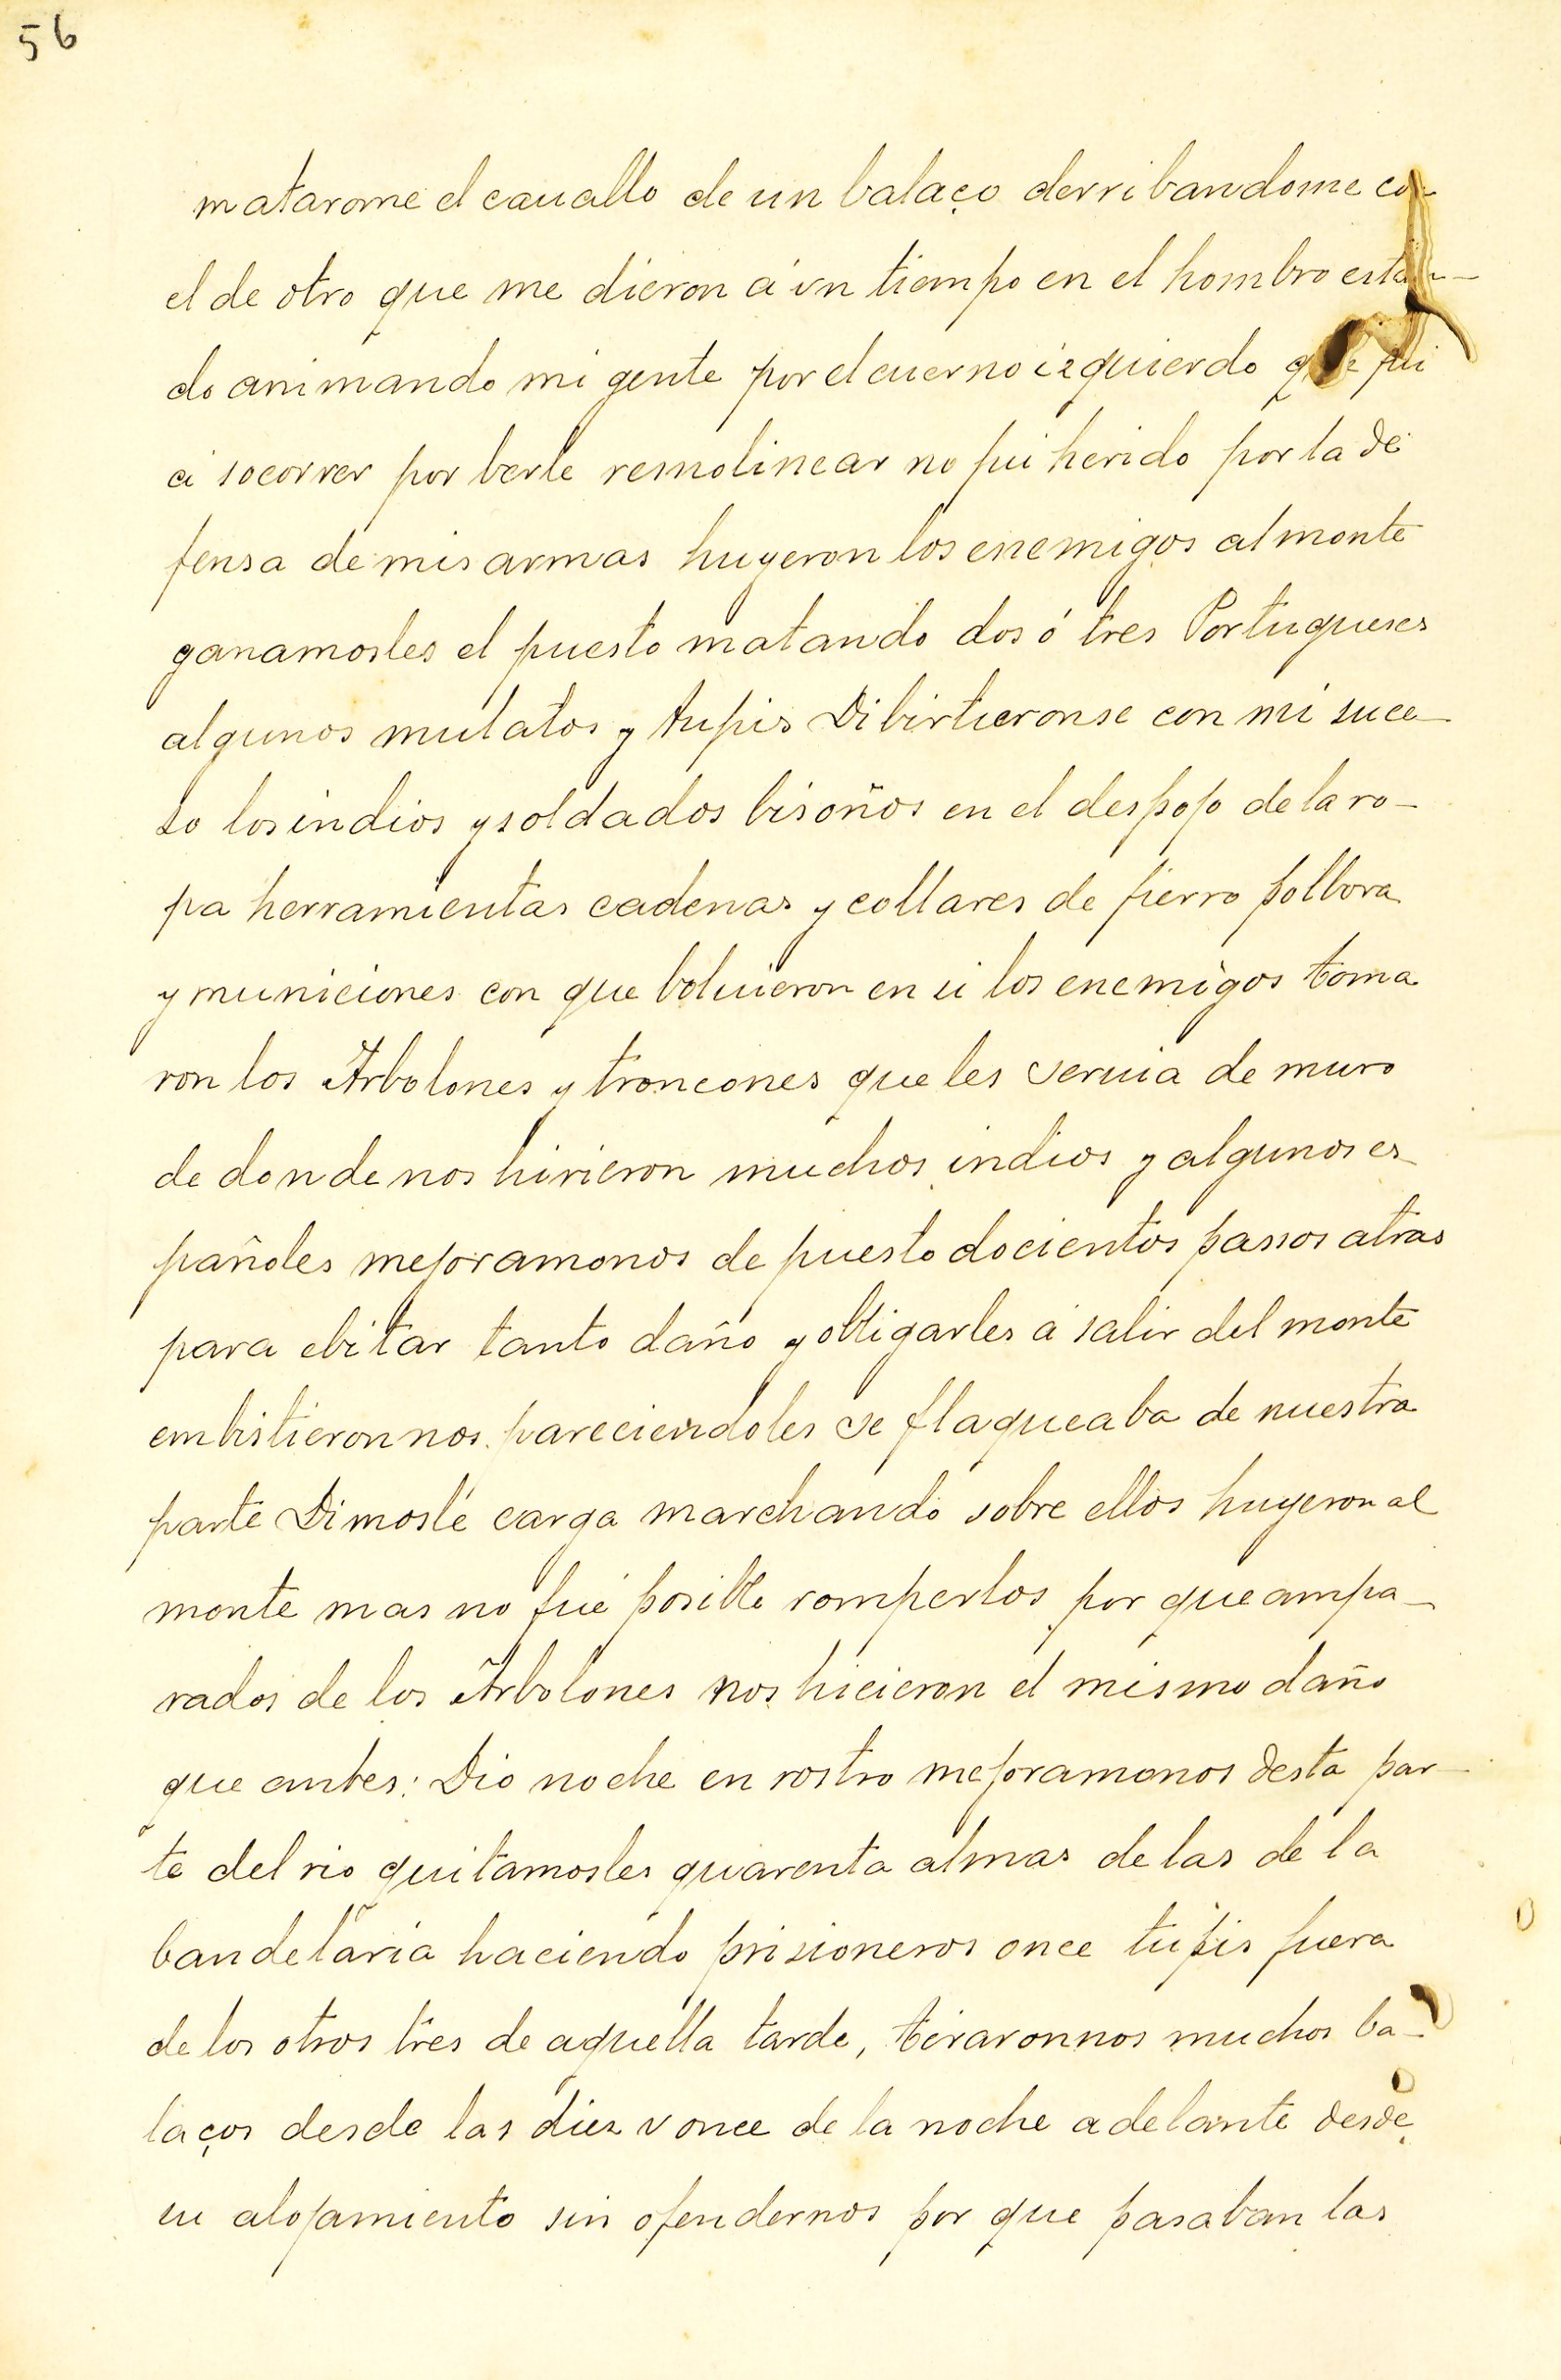 56
matarome el cauallo de un balaço derribandome con
el de otro que me dieron á vn tiempo en el hombro estan-
do animando mi gente por el cuerno izquierdo que fui
á socorrer por berle remolinear no fui herido por la de
fensa de mis armas huyeron los enemigos al monte
ganamosles el puesto matando dos ó tres Portugueses
algunos mulatos y tupis Dibirtieronse con mi suce-
so los indios y soldados bisoños en el despojo de la ro-
pa herramientas cadenas y collares de fierro polbora
y municiones con que boluieron en si los enemigos toma
ron los Arbolones y troncones que les seruia de muro
de donde nos hirieron muchos indios y algunos es-
pañoles mejoramonos de puesto docientos passos atras
para ebitar tanto daño y obligarles á salir del monte
embistieronnos pareciendoles se flaqueaba de nuestra
parte Dimosle carga marchando sobre ellos huyeron al
monte mas no fué posible romperlos por que ampa-
rados de los Arbolones nos hicieron el mismo daño
que antes: Dio noche en rostro mejoramonos desta par-
te del rio quitamosles quarenta almas de las de la
bandelaria haciendo prisioneros once tupis fuera
de los otros tres de aquella tarde, tiraronnos muchos ba-
laços desde las diez v once de la noche adelante desde
su alojamiento sin ofendernos por que pasaban las